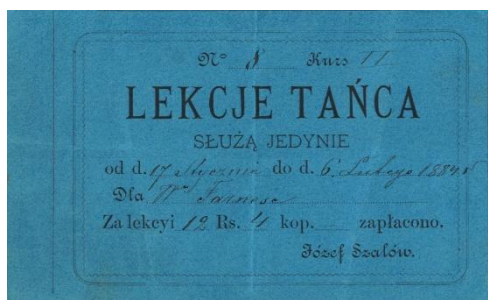 No 8 Kurs II
LEKCJE TAŃCA
SŁUŻĄ JEDYNIE
od d. 17 Stycznia do d. 6 Lutego 1884 r
Dla Wº
Za lekcyi 12 Rs. 4 kop. zapłacono.
Józef Szalów.